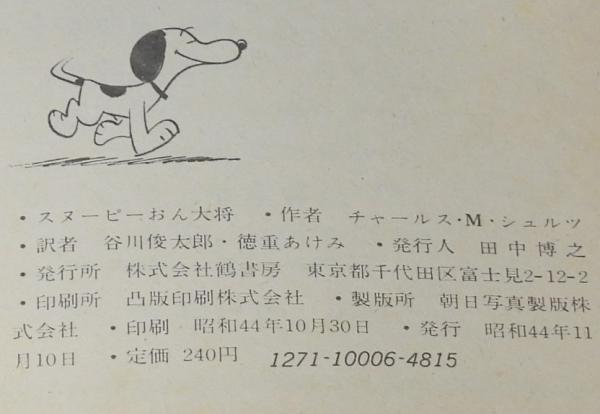 ・スヌーピーおん大将 ・作者 チャールス・M・シュルツ
・訳者 谷川俊太郎・徳重あけみ ・発行人 田中博之
・発行所 株式会社鶴書房 東京都千代田区富士見2-12-2
・印刷所 凸版印刷株式会社 ・製版所 朝日写真製版株
式会社 ・印刷 昭和44年10月30日 ・発行 昭和44年11
月10日 ・定価 240円 1271-10006-4815